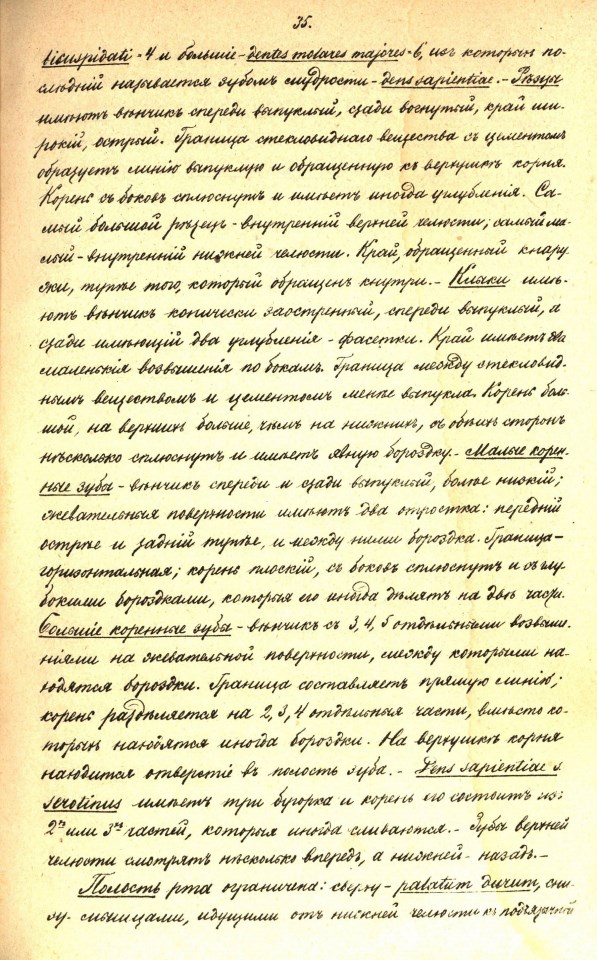 35.
bicuspidati = 4 и большіе - dentes molares majores = 6, изъ которыхъ по-
слѣдній называется зубомъ мудрости - dens sapientiae. - Рѣзцы
имѣютъ вѣнчикъ спереди выпуклый, сзади вогнутый, край ши-
рокій, острый. Граница стекловиднаго вещества съ цементомъ
образуетъ линію выпуклую и обращенную къ верхушкѣ корня.
Корень съ боковъ сплюснутъ и имѣетъ иногда углубленія. Са-
мый большой рѣзецъ - внутренній верхней челюсти; самый ма-
лый - внутренній нижней челюсти. Край, обращенный кнару-
жи, тупѣе того, который обращенъ кнутри. - Клыки имѣ-
ютъ вѣнчикъ конически заостренный, спереди выпуклый, а
сзади имѣющій два углубленія - фасетки. Край имѣетъ
маленькія возвышенія по бокамъ. Граница между стекловид-
нымъ веществомъ и цементомъ менѣе выпукла. Корень боль-
шой, на верхнихъ больше, чѣмъ на нижнихъ, съ обѣихъ сторонъ
нѣсколько сплюснутъ и имѣетъ явную бороздку. - Малые корен-
ные зубы - вѣнчикъ спереди и сзади выпуклый, болѣе низкій;
жевательныя поверхности имѣютъ два отростка: передній
острѣе и задній тупѣе, и между ними бороздка. Граница -
горизонтальная; корень плоскій, съ боковъ сплюснутъ и съ глу-
бокими бороздками, которыя его иногда дѣлятъ на двѣ части.
Большіе коренные зубы - вѣнчикъ съ 3, 4, 5 отдѣльными возвыше-
ніями на жевательной поверхности, между которыми на-
ходятся бороздки. Граница составляетъ прямую линію;
корень раздѣляется на 2, 3, 4 отдѣльныя части, вмѣсто ко-
торыхъ находятся иногда бороздки. На верхушкѣ корня
находится отверстіе въ полость зуба. - Dens sapientiae s.
serotinus имѣетъ три бугорка и корень его состоитъ изъ
2хъ или 3хъ частей, которыя иногда сливаются. - Зубы верхней
челюсти смотрятъ нѣсколько впередъ, а нижней - назадъ. -
Полость рта ограничена: сверху - palatum durum, сни-
зу - мышцами, идущими отъ нижней челюсти къ подъязычной